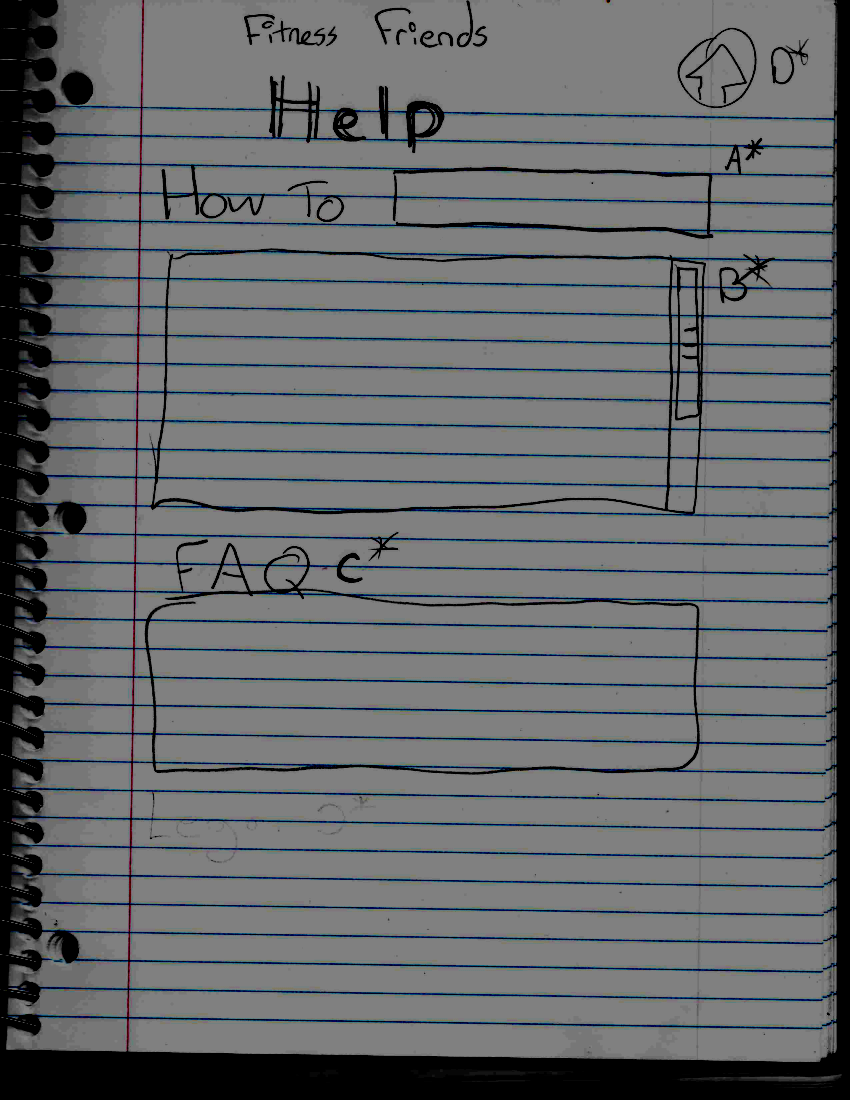 Fitness Friends
D*
Help
A*
How To
B*
FAQ C*